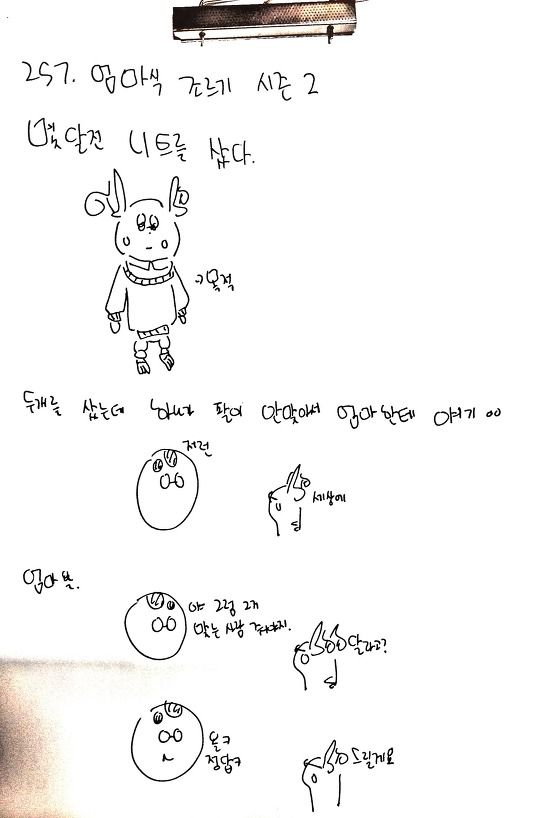 257. 엄마식 조르기 시즌 2
몇달전 니트를 샀다.
두개를 샀는데 하나가 팔이 안맞아서 엄마한테 얘기 ㅇㅇ
저런
세상에
엄마 왈.
야 그럼 그거
맞는 사람 줘야지.
달라고?
올ㅋ
정답ㅋ
드릴게요